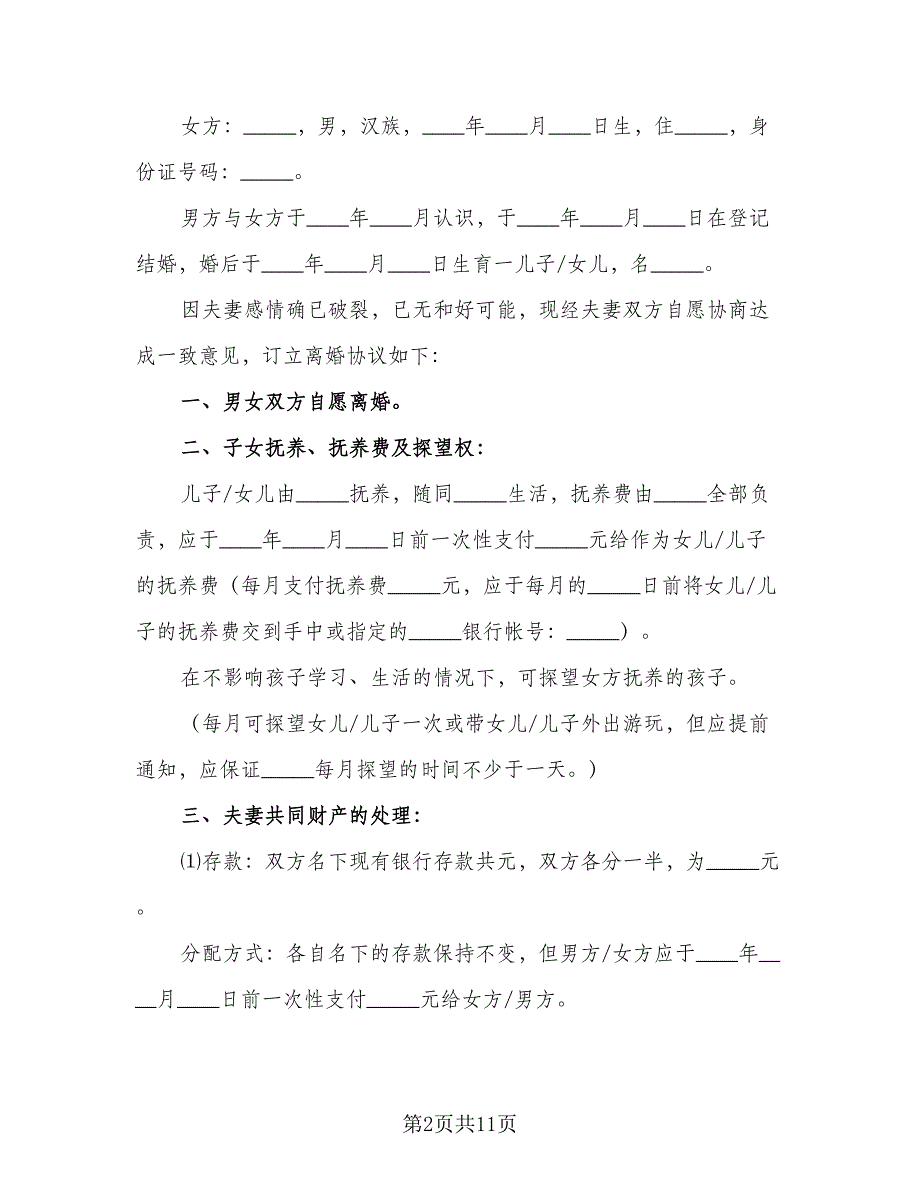 女方：_____，男，汉族，____年____月____日生，住_____，身
份证号码：_____。
男方与女方于____年____月认识，于____年____月____日在登记
结婚，婚后于____年____月____日生育一儿子/女儿，名_____。
因夫妻感情确已破裂，已无和好可能，现经夫妻双方自愿协商达
成一致意见，订立离婚协议如下：
一、男女双方自愿离婚。
二、子女抚养、抚养费及探望权：
儿子/女儿由_____抚养，随同_____生活，抚养费由_____全部负
责，应于____年____月____日前一次性支付_____元给作为女儿/儿子
的抚养费（每月支付抚养费_____元，应于每月的_____日前将女儿/儿
子的抚养费交到手中或指定的_____银行帐号：_____）。
在不影响孩子学习、生活的情况下，可探望女方抚养的孩子。
（每月可探望女儿/儿子一次或带女儿/儿子外出游玩，但应提前
通知，应保证_____每月探望的时间不少于一天。）
三、夫妻共同财产的处理：
⑴存款：双方名下现有银行存款共元，双方各分一半，为_____元
。
分配方式：各自名下的存款保持不变，但男方/女方应于____年__
__月____日前一次性支付_____元给女方/男方。
第2页共11页